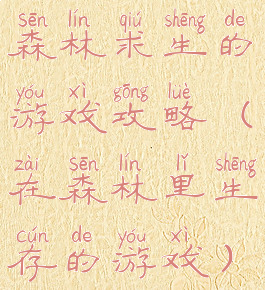 sēn lín qiú shēng de
森林求生的
yóu xì gōng luè
游戏攻略（
zài sēn lín lǐ shēng
在森林里生
cún de yóu xì
存的游戏）